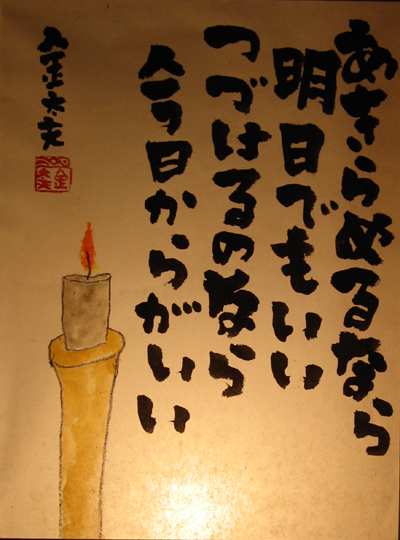 あきらめるなら
明日でもいい
つづけるのなら
今日からがいい